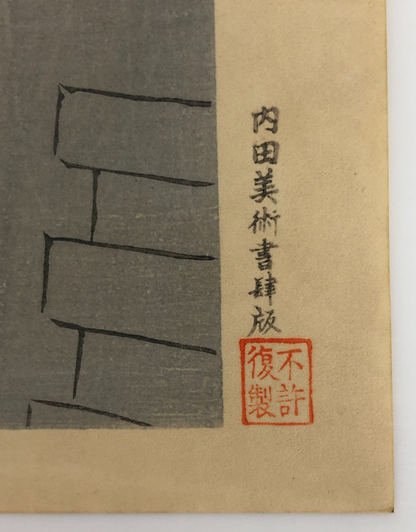 内田美術書肆版
不許
復製